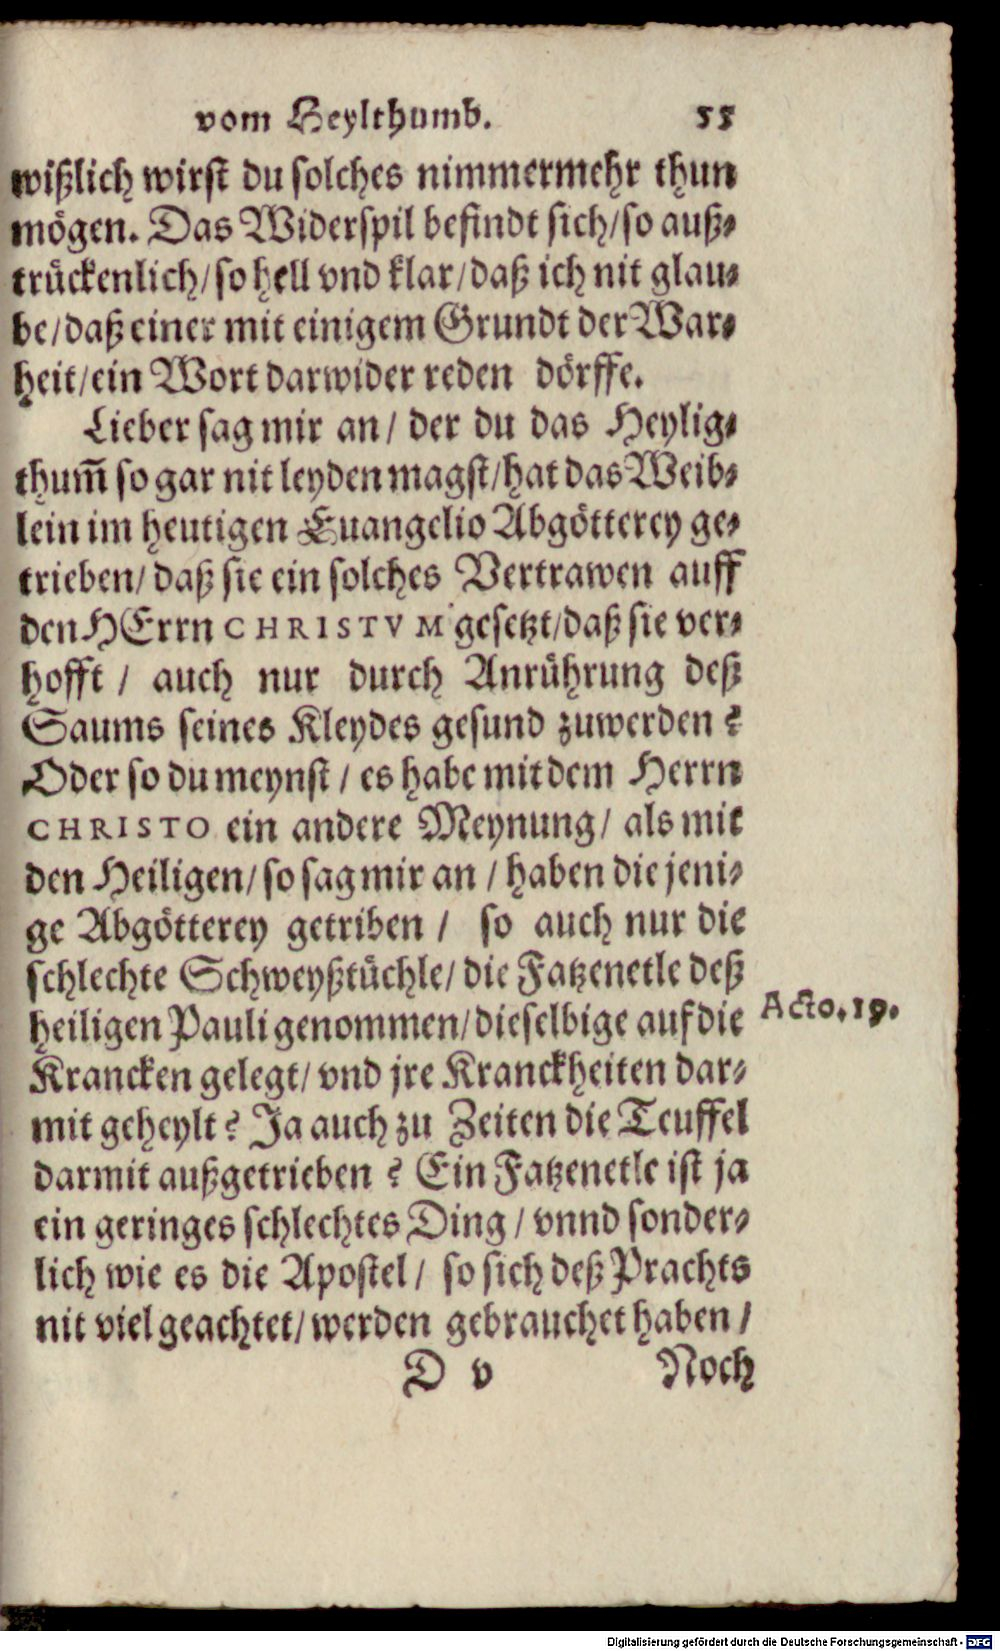 vom Heylthumb. 55
wißlich wirst du solches nimmermehr thun
mögen. Das Widerspil befindt sich/so auß-
trückenlich/so hell vnd klar/daß ich nit glau-
be/daß einer mit einigem Grundt der War-
heit/ein Wort darwider reden dörffe.
Lieber sag mir an/ der du das Heylig-
thum̃ so gar nit leyden magst/hat das Weib-
lein im heutigen Euangelio Abgötterey ge-
trieben/ daß sie ein solches Vertrawen auff
den HErrn CHRISTVM gesetzt/daß sie ver-
hofft / auch nur durch Anrührung deß
Saums seines Kleydes gesund zuwerden?
Oder so du meynst / es habe mit dem Herrn
CHRISTO ein andere Meynung/ als mit
den Heiligen/ so sag mir an / haben die jeni-
ge Abgötterey getriben / so auch nur die
schlechte Schweyßtüchle/ die Fatzenetle deß
heiligen Pauli genommen/dieselbige auf die
Acto.19.
Krancken gelegt/ vnd jre Kranckheiten dar-
mit geheylt? Ja auch zu Zeiten die Teuffel
darmit außgetrieben? Ein Fatzenetle ist ja
ein geringes schlechtes Ding / vnnd sonder-
lich wie es die Apostel/ so sich deß Prachts
nit viel geachtet/ werden gebrauchet haben /
D v Noch
Digitalisierung gefördert durch die Deutsche Forschungsgemeinschaft - DFG